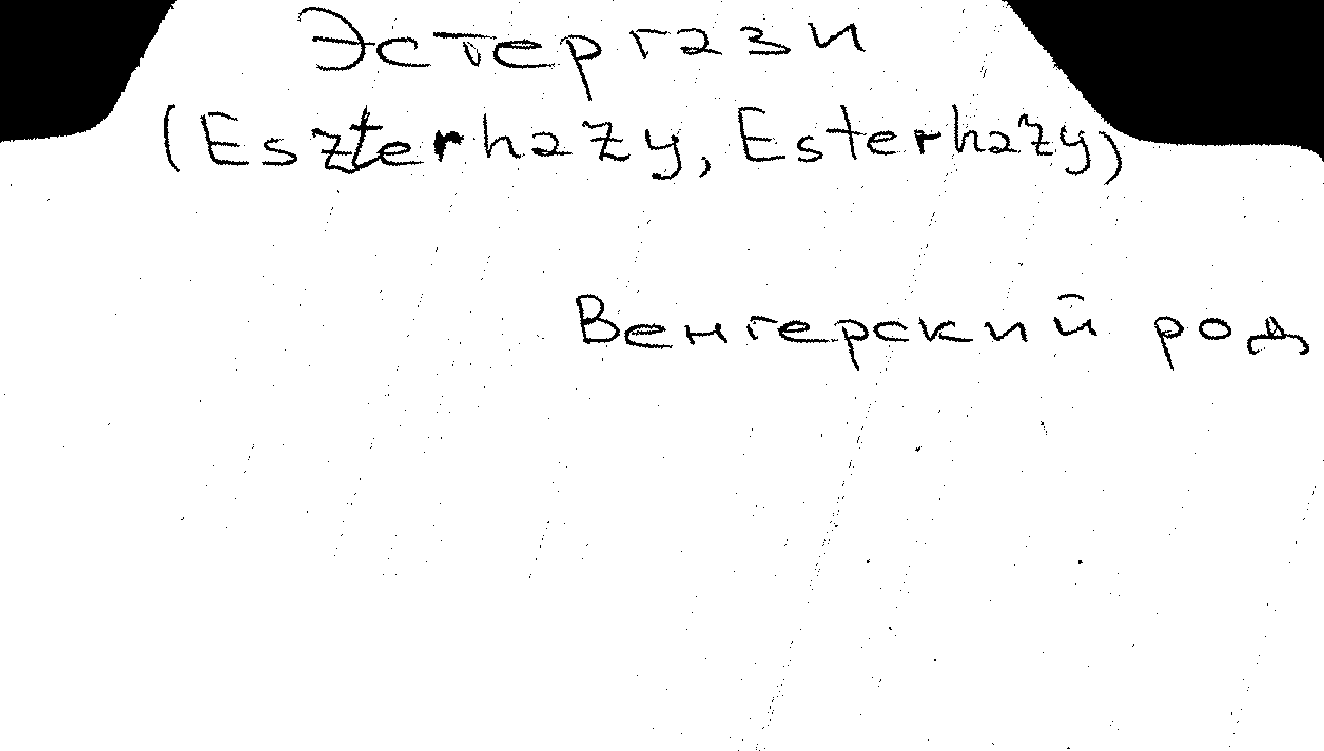 Эстергази
(Eszterhazy, Esterhazy)
Венгерский род